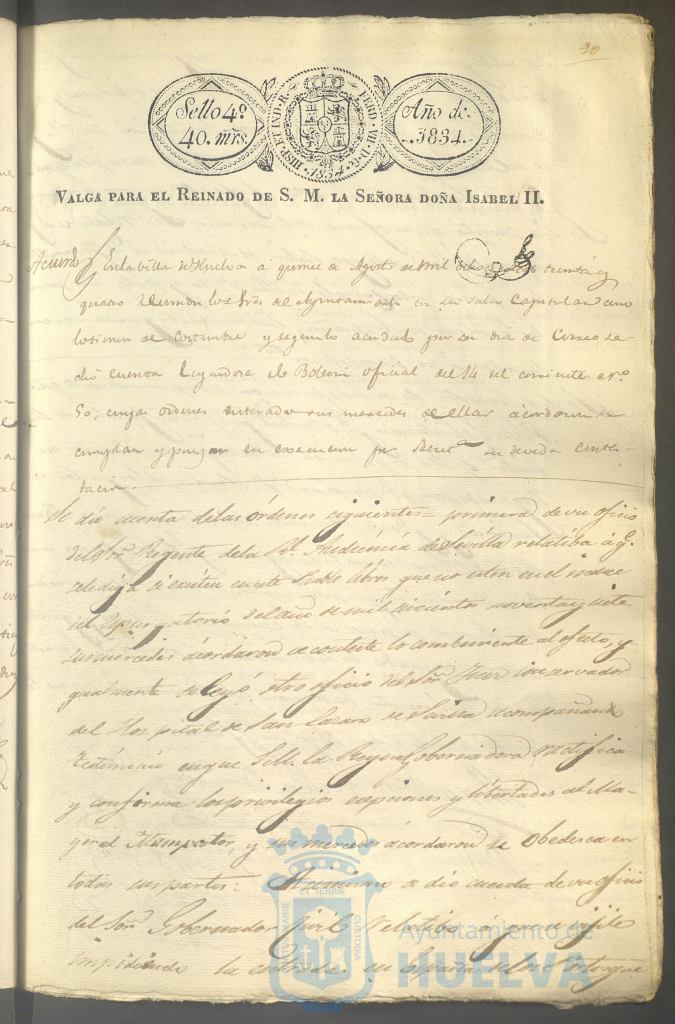 90
Sello 4º
40. mrs.
HISP. ET IND. R. FERD. VII. D. G.
1834
Año de
1834.
VALGA PARA EL REINADO DE S. M. LA SEÑORA DOÑA ISABEL II.
Acuerdo
En la villa de Huelva a quince de Agosto de mil ochocientos treinta y
quatro reunidos los Sres del Ayuntamiento en su sala Capitular como
lo tienen de costumbre y segun lo acordado por ser dia de Correo se
dió cuenta leyendose el Boletin oficial del 14 del corriente nº
50, cuyas ordenes enteradas sus mercedes de ellas acordaron se
cumplan y pongan en execucion pr Secretª su devida contes-
tacion.
Se dio cuenta delas órdenes siguientes = primera de un oficio
del Sr Regente dela Rl Audiencia de Sevilla relatiba á q.
se le diga si existen en este Pueblo libros que no esten en el indice
del espurgatorio del año de mil setecientos noventa y siete
sus mercedes acordaron se conteste lo combeniente al efecto, y
ygualmente se leyó otro oficio del Sor Juez conservador
del Hospital de San Lazaro de Sevilla acompañando
testimonio en que S. M. la Reyna Gobernadora ratifica
y conforma los privilegios esepciones y libertades al Ma-
yoral Mampastor, y sus mercedes acordaron se obedesca en
todas sus partes: Asimismo se dio cuenta de un oficio
del Sor Gobernador Civil relatibo á que se vijile
impidiendo la entrada en España del
EL TERRE
PORTUS MARIS
CUSTODIA
Ayuntamiento de
HUELVA